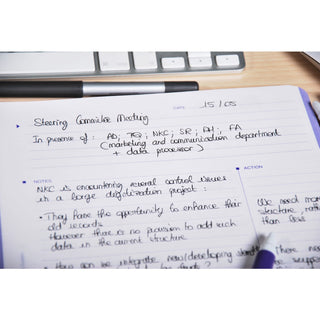 DATE 15/05
Steering Committee Meeting
In presence of : AD; TQ; NKC; SR; AH; FA
(marketing and communication department
+ data processor)
NOTES
NKC is encountering several control issues
in a large digitization project :
• They have the opportunity to enhance their
old records
However there is no provision to add such
data in the current structure
• How can we integrate new/developing
ACTION
We need more
structure, rat
than less
There nee